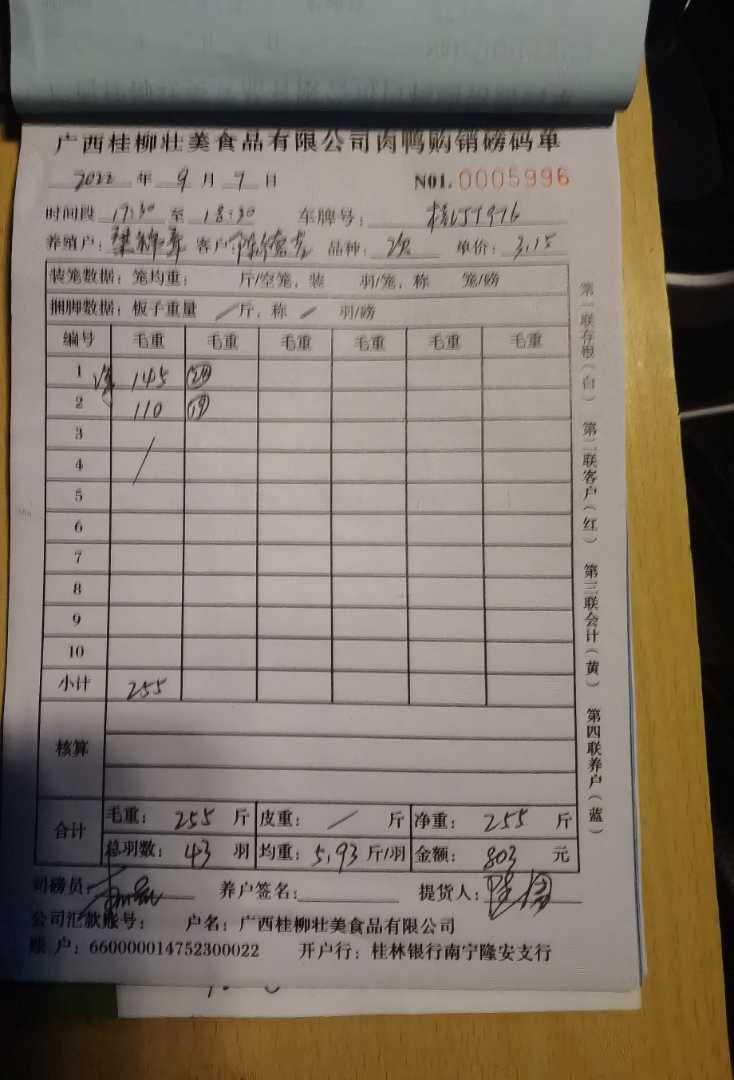 广西桂柳壮美食品有限公司肉鸭购销磅码单
2022 年 9 月 9 日 N01. 0005996
时间段 17:30 至 18:30 车牌号:
养殖户: 客户 品种: 次 单价: 3.15
装笼数据: 笼均重: 斤/空笼, 装 羽/笼, 称 笼/磅
捆脚数据: 板子重量 / 斤, 称 / 羽/磅
编号 毛重 毛重 毛重 毛重 毛重 毛重
1 净 145 24
2 110 19
3 /
4
5
6
7
8
9
10
小计 255
核算
合计 毛重: 255 斤 皮重: / 斤 净重: 255 斤
总羽数: 43 羽 均重: 5.93 斤/羽 金额: 803 元
司磅员 养户签名: 提货人:
公司汇款账号: 户名: 广西桂柳壮美食品有限公司
账户: 660000014752300022 开户行: 桂林银行南宁隆安支行
第一联存根(白) 第二联客户(红) 第三联会计(黄) 第四联养户(蓝)